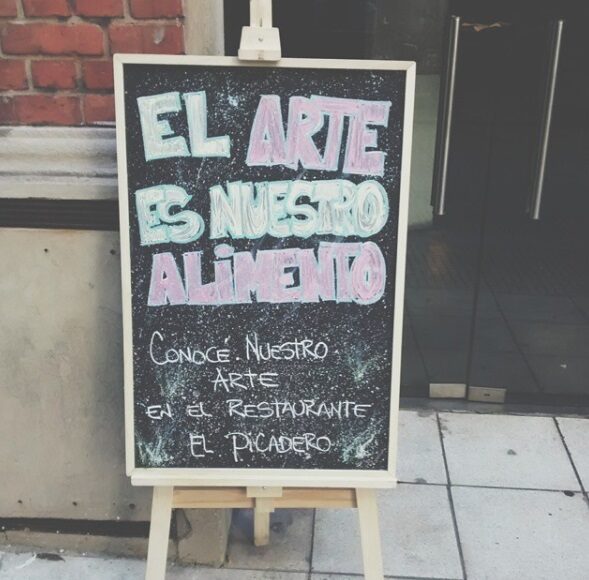 EL ARTE
ES NUESTRO
ALiMENTO
CONOCÉ NUESTRO
ARTE
EN EL RESTAURANTE
EL PICADERO